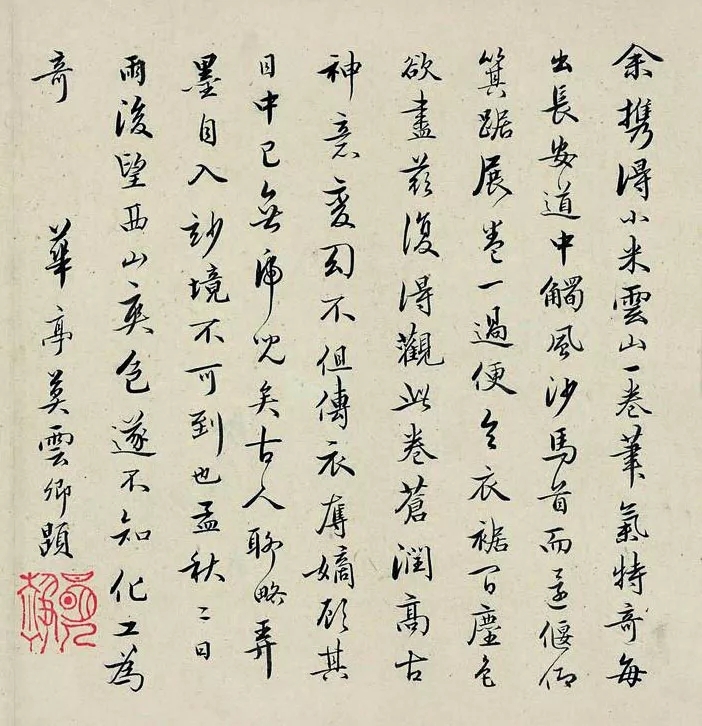 余攜得小米雲山一卷筆氣特奇每
出長安道中觸風沙馬首而還偃仰
箕踞展卷一過便令衣裾間塵色
欲盡茲復得觀此卷蒼潤高古
神意變幻不但傳衣嫡顧其
目中已無虎兒矣古人聊略弄
墨自入玅境不可到也孟秋二日
雨後望西山爽色遂不知化工為
奇 華亭莫雲卿題